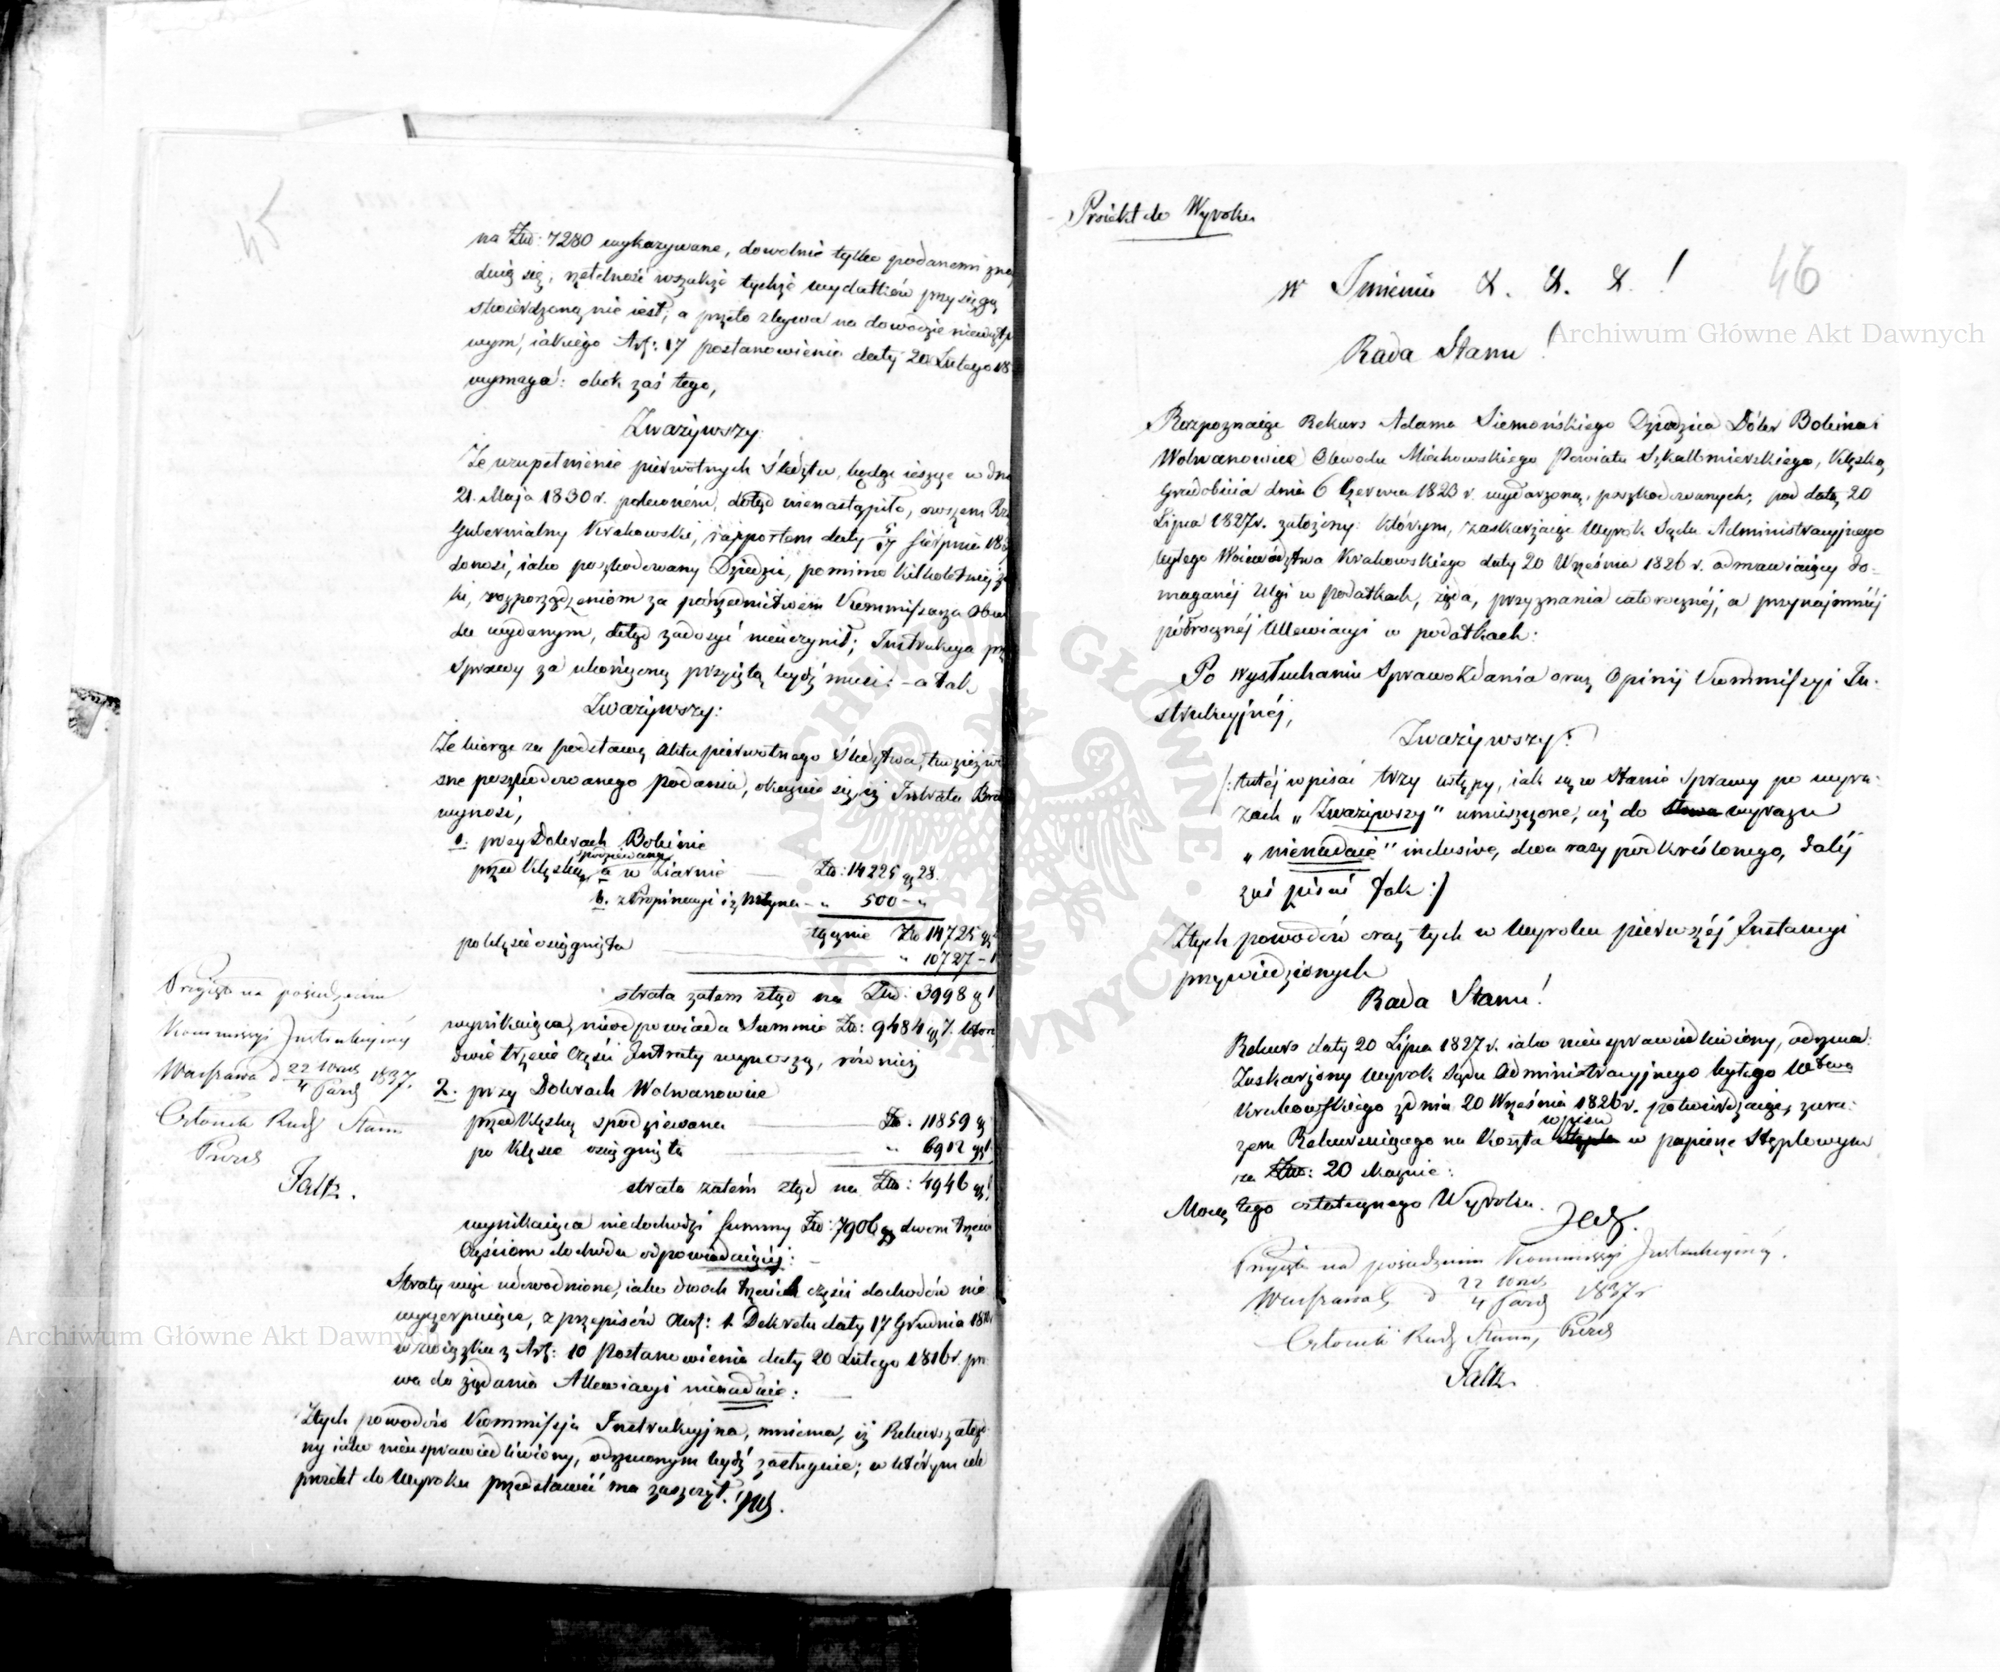 45
na Zło: 7280 wykazywane, dowolnie tylko podanemi znay
duią się, rzetelność wszakże tychże wydatków przysięgą
stwierdzoną nie iest; a przeto zbywa na dowodzie niewątp
wym, iakiego Art: 17 postanowienia daty 20 Lutego 18
wymaga: obok zaś tego,
Zważywszy:
Że uzupełnienie pierwotnych Śledztw, będąc ieszcze w dniu
21. Maja 1830 r. polecone, dotąd nienastąpiło, owszem Rząd
Gubernialny Krakowski, rapportem daty 5/17 Sierpnia 183
donosi, iako poszkodowany Dziedzic, pomimo kilkoletniej zw
ki, rozporządzeniom za pośrednictwem Kommissarza Obwo
du wydanym, dotąd zadosyć nieuczynił; Instrukcya prze
Sprawy za ukończoną przyiętą bydź musi: - a tak
Zważywszy:
Że biorąc za podstawę Akta pierwotnego Śledztwa, tudzież wła
sne poszkodowanego podania, okazuie się, iż Intrata Bru
wynosi,
1. przy Dobrach Bolinie
przed klęską spodziewana a w Ziarnie — Zło: 14225 gr 28.
b. z Propinacyi i z Młyna - „ 500 - „
łącznie Zło 14725 gr
po klęsce osiągnięta — „ 10727 - 1
strata zatem ztąd na Zło: 3998 gr
wynikaiąca, nieodpowiada Summie Zło: 9484 gr 7. które
dwie trzecie Części Intraty wynoszą, również
2. przy Dobrach Wolwanowice
przed klęską spodziewana — Zło. 11859 gr
po klęsce osiągnięta — „ 6912 gr
strata zatem ztąd na Zło: 4946 gr
wynikaiąca niedochodzi summy Zło: 7906 gr dwom trzecim
Częściom dochodu odpowiadaiącéj: -
Straty więc udowodnione, iako dwóch trzecich części dochodów nie
wyczerpuiące, z przepisów Art: 1. Dekretu daty 17 Grudnia 181
w związku z Art: 10 Postanowienia daty 20 Lutego 1816 r. pra
wa do żądania Allewiacyi nienadaie: —
Z tych powodów Kommissya Instrukcyjna, mniema, iż Rekurs założo
ny iako nieusprawiedliwiony, odrzuconym bydź zasługuie; w którym celu
proiekt do Wyroku przedstawić ma zaszczyt.
Przyięto na posiedzeniu
Kommissyi Instrukcyjnéj
Warszawa d 22/4 1837.
Członek Rady Stanu
Prezes
Faltz.
Proiekt do Wyroku
46
w Imieniu &. &. &. !
Rada Stanu!
Rozpoznaiąc Rekurs Adama Siemońskiego Dziedzica Dóbr Bolina i
Wolwanowice Obwodu Miechowskiego Powiatu Szkalbmierskiego, klęską
Gradobicia dnia 6 Czerwca 1823 r. wydarzoną, poszkodowanych; pod datą 20
Lipca 1827 r. założony: którym, zaskarżaiąc Wyrok Sądu Administracyjnego
byłego Woiewództwa Krakowskiego daty 20 Września 1826 r. odmawiaiący do-
maganéj Ulgi w podatkach, żąda, przyznania całorocznéj, a przynajmniéj
półrocznéj Allewiacyi w podatkach:
Po wysłuchaniu Sprawozdania oraz Opinij Kommissyi In-
strukcyjnéj,
Zważywszy:
/: tutéj wpisać trzy ustępy, iak są w Stanie Sprawy po wyra-
zach „Zważywszy” umieszczone, aż do słowa wyrazu
„nienadaie” inclusive, dwa razy podkreślonego, daléj
zaś pisać tak :/
Z tych powodów oraz tych w Wyroku pierwszéj Instancyi
przywiedzionych
Rada Stanu!
Rekurs daty 20 Lipca 1827 r. iako nieusprawiedliwiony, odrzuca:
Zaskarżony Wyrok Sądu Administracyjnego byłego Wdztwa
Krakowskiego z dnia 20 Września 1826 r. potwierdzaiąc, zara-
zem Rekuruiącego na Koszta wpisu w papierze Stęplowym
na Zło: 20 skazuie:
Mocą tego ostatecznego Wyroku.
Przyięto na posiedzeniu Kommissyi Instrukcyjnéj.
Warszawa d 22/4 1837 r
Członek Rady Stanu, Prezes
Faltz.
Archiwum Główne Akt Dawnych
Archiwum Główne Akt Dawnych
ARCHIWUM GŁÓWNE AKT DAWNYCH